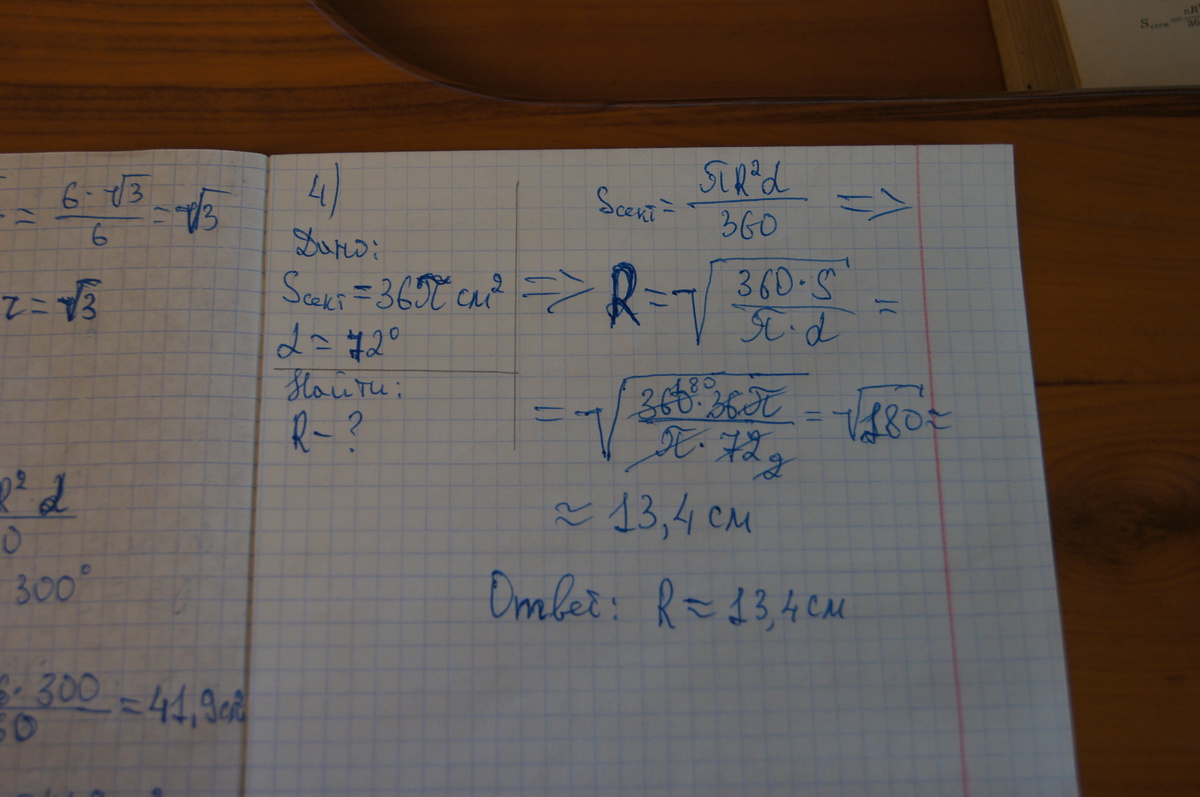 = 6·√3 / 6 = √3
r = √3
R² α
300°
· 300 / = 41,9 см²
4)
Дано:
Sсект = 36π см²
α = 72°
Найти:
R – ?
Sсект = πR²α / 360 =>
=> R = √(360·S / π·α) =
= √(360·36π / π·72) = √180 ≈
180
2
≈ 13,4 см
Ответ: R ≈ 13,4 см